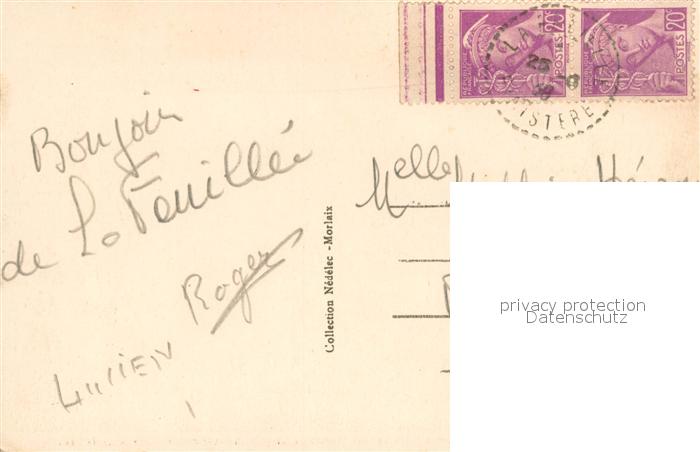 Bonjour
de La Feuillée
Roger
Lucien
Collection Nédélec - Morlaix
20c
POSTES
20c
POSTES
25
ISTERE
Melle
privacy protection
Datenschutz